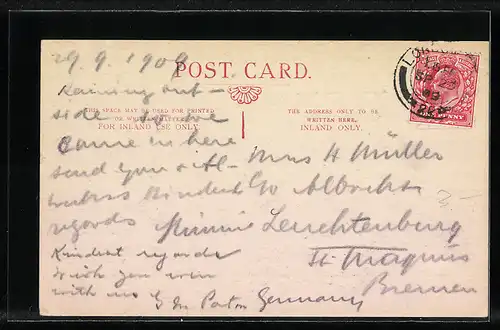 29.9.1909
POST CARD.
Raining out-
side so we
THIS SPACE MAY BE USED FOR PRINTED
OR WRITTEN MATTER
FOR INLAND USE ONLY.
THE ADDRESS ONLY TO BE
WRITTEN HERE.
INLAND ONLY.
came in here
send you &
Mrs H Müller
kindest
c/o Albrecht
regards
Minnie
Leuchtenburg
St. Magnus
Bremen
Germany
Kindest regards
Wish you were
with us
LONDON
PENNY